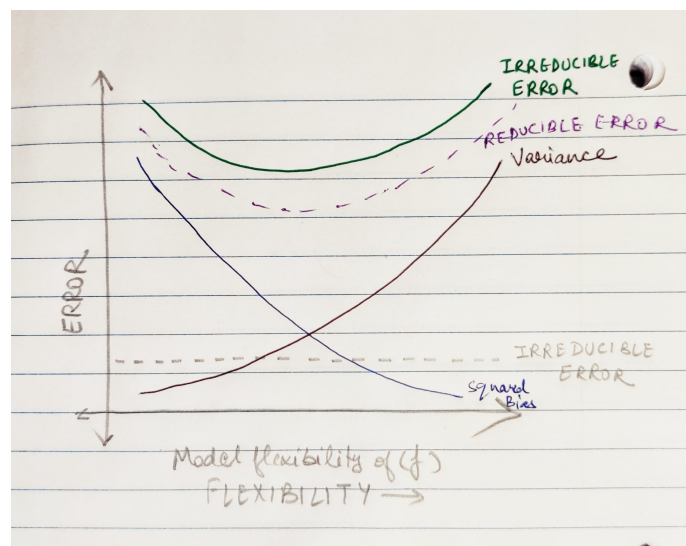 IRREDUCIBLE
ERROR
REDUCIBLE ERROR
Variance
ERROR
IRREDUCIBLE
ERROR
Squard
Bias
Model flexibility of (f)
FLEXIBILITY →